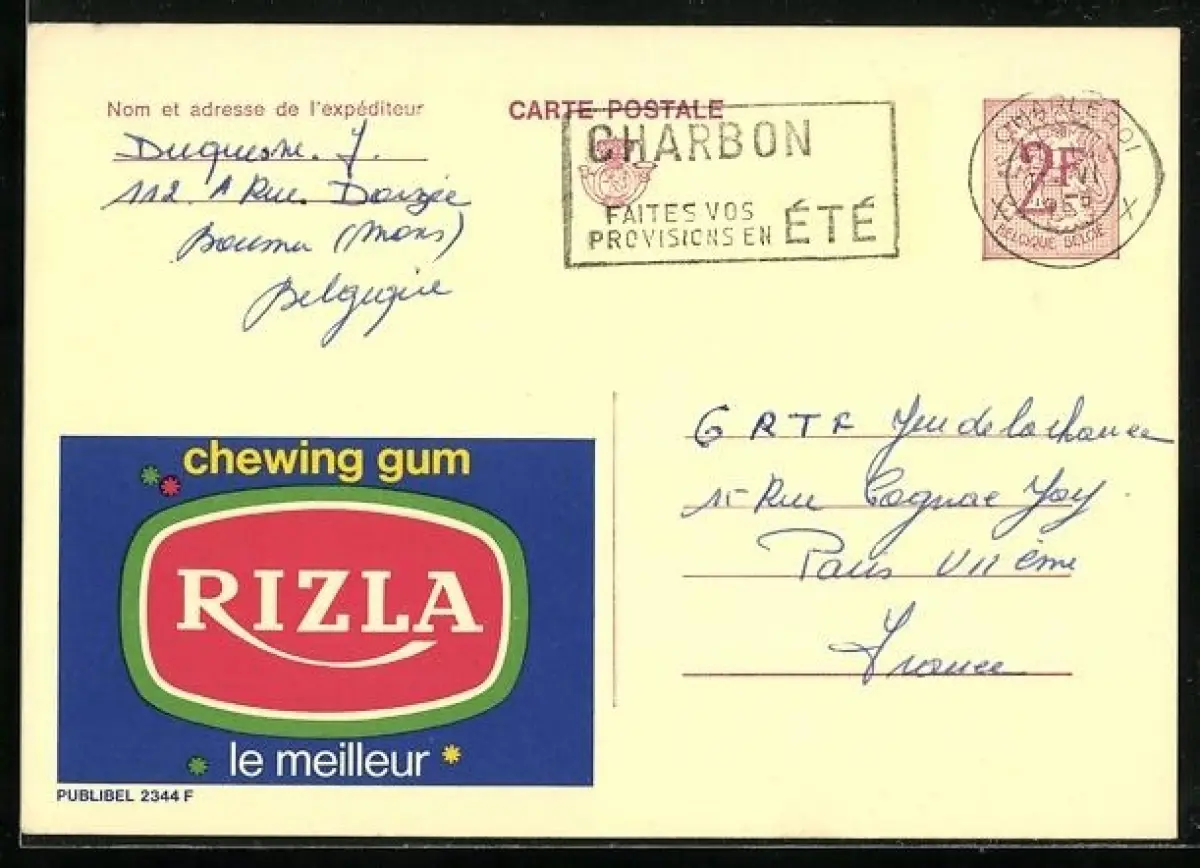 Nom et adresse de l'expéditeur
Duquesne. J.
112. A Rue
(Mons)
Belgique
CARTE POSTALE
CHARBON
FAITES VOS
PROVISIONS EN ÉTÉ
CHARLEROI
X X
2F
BELGIQUE BELGIË
Jeu de la chance
15 Rue Cognac Jay.
Paris VII ème
France
chewing gum
RIZLA
le meilleur
PUBLIBEL 2344 F